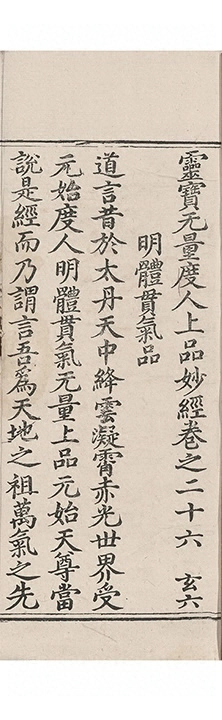 靈寶无量度人上品妙經卷之二十六 玄六
明體貫氣品
道言昔於太丹天中絳雲凝霄赤光世界受
元始度人明體貫氣无量上品元始天尊當
說是經而乃謂言吾爲天地之祖萬氣之先